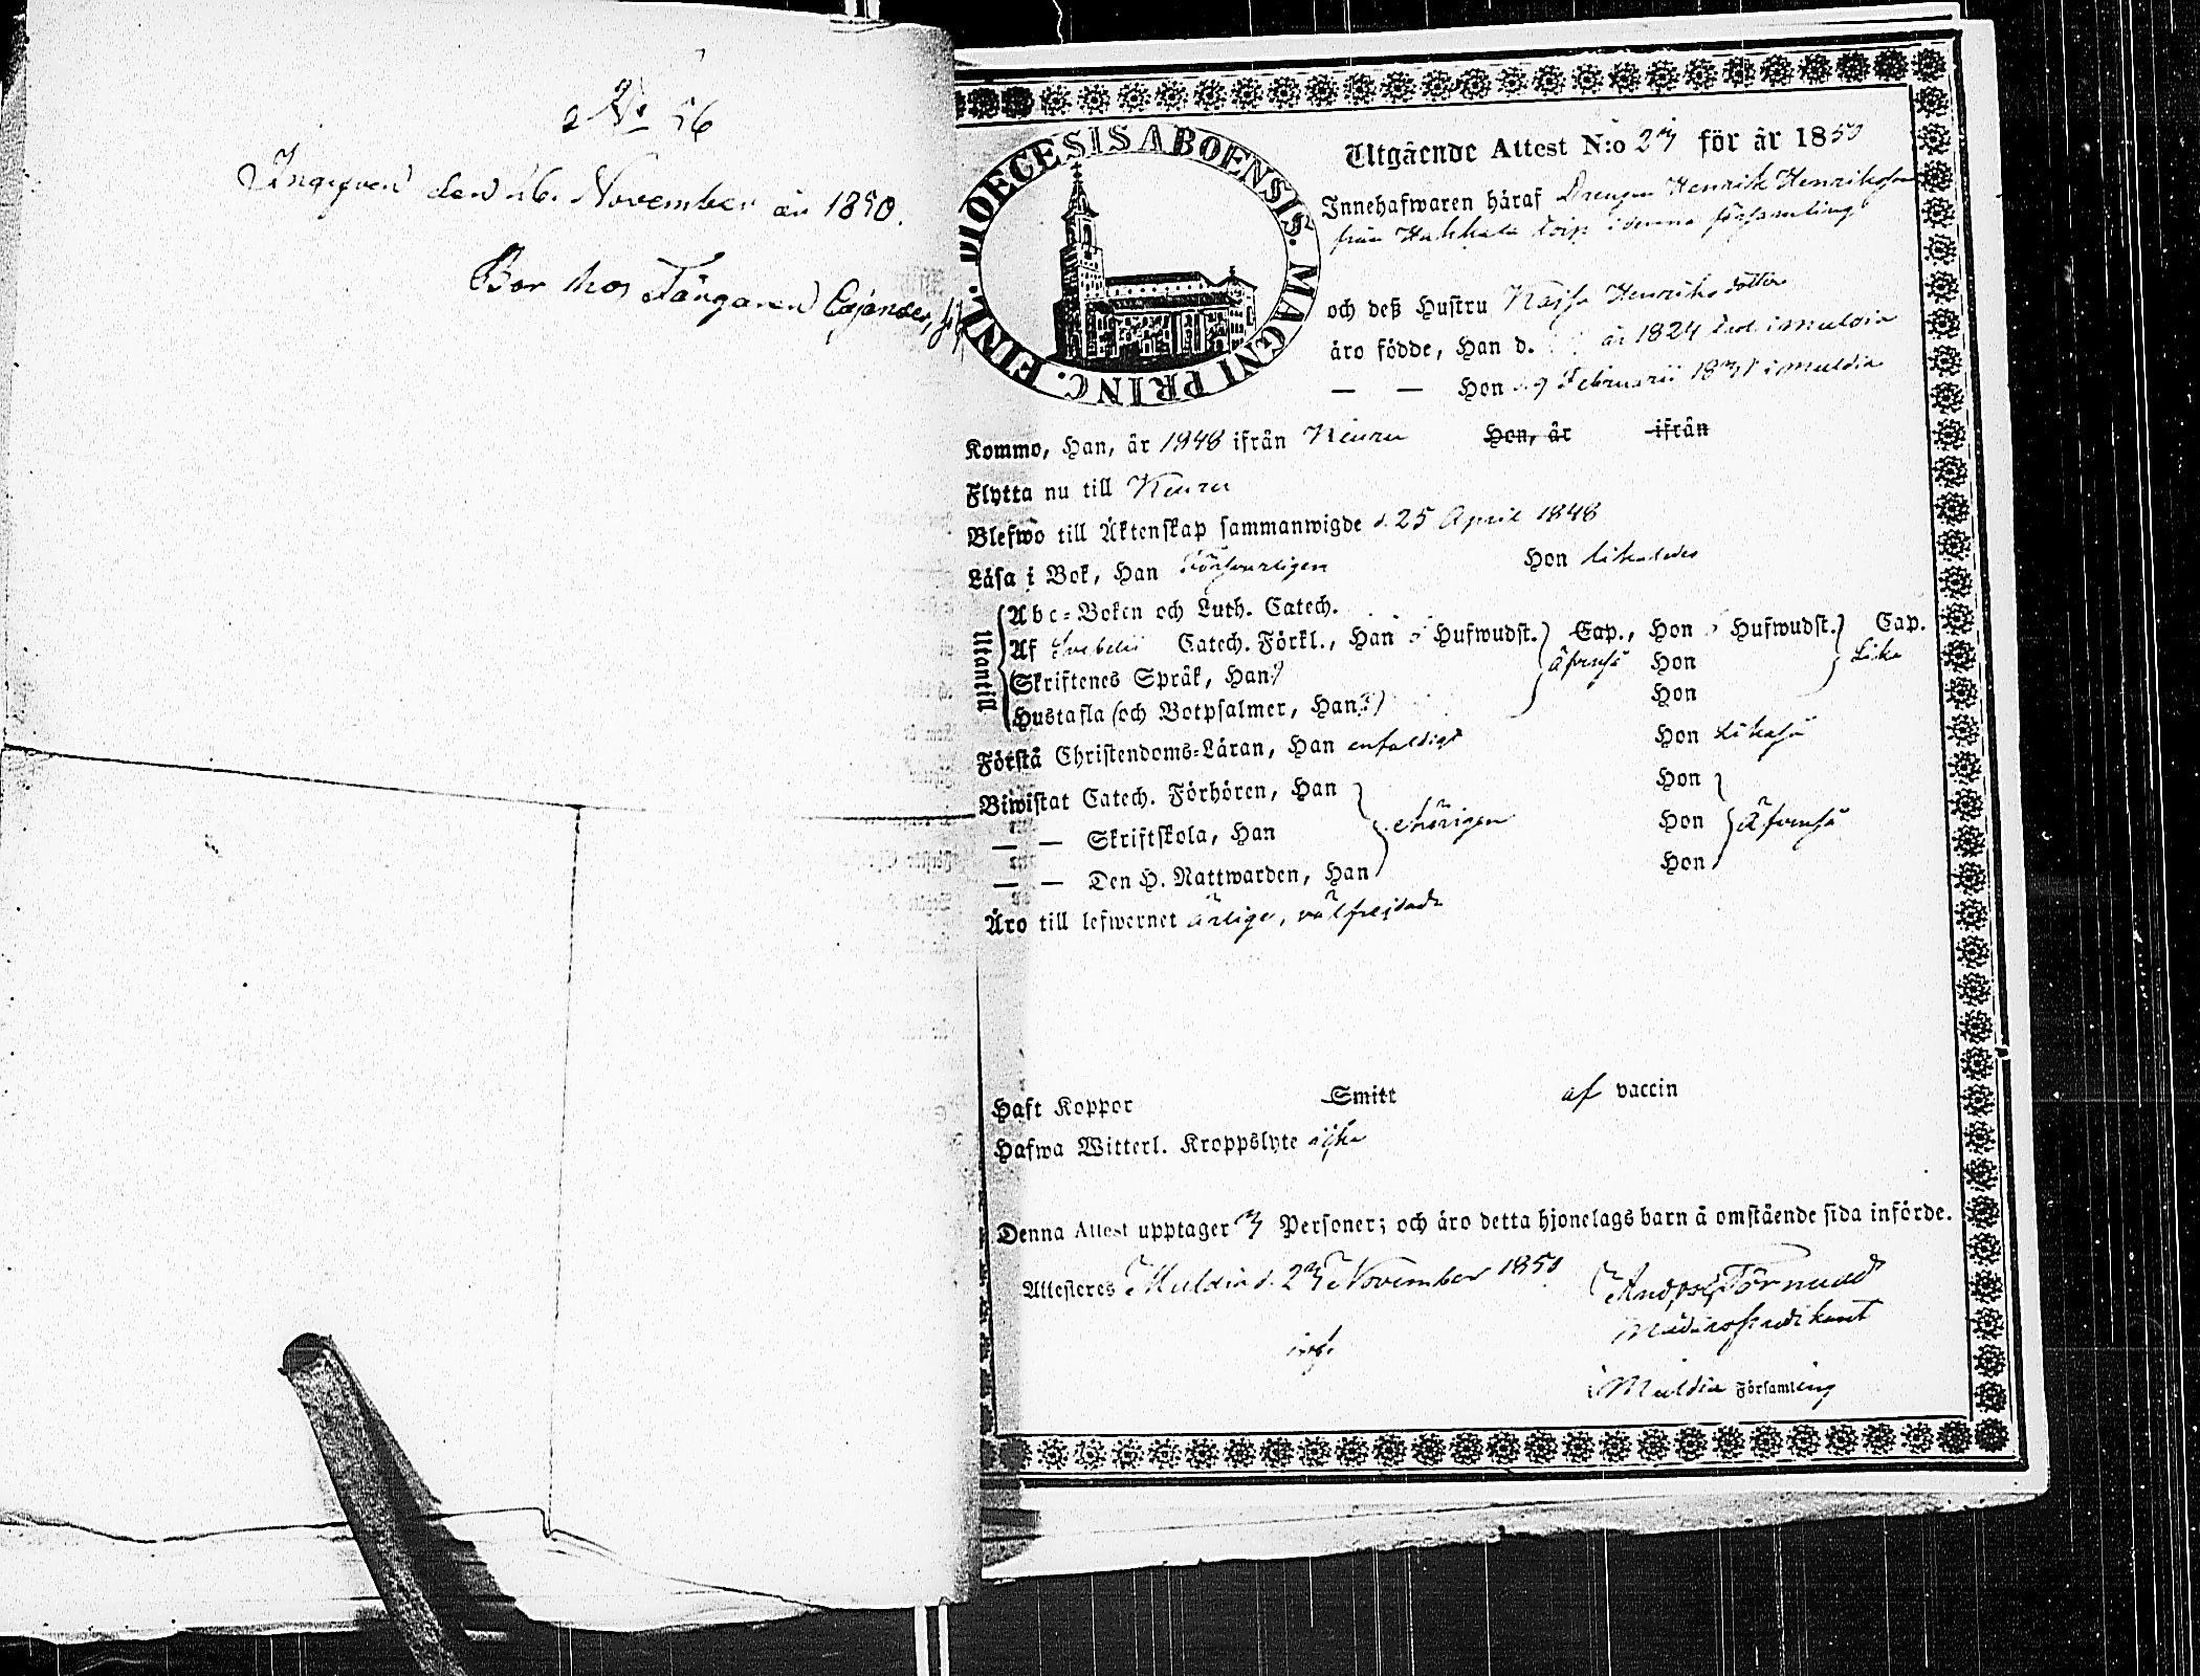 No 56
Ingifven den 26. November år 1850.
Bor hos Fångaren
DIOECESIS ABOENSIS. MAGNI PRINC. FINL.
Utgående Attest N:o 27 för år 1850
Innehafwaren häraf Drengen Henrik Henriksson
från torp i denna församling
och deß Hustru Kajsa Henriksdotter
äro födde, Han d. år 1824 i Muldia
— — Hon d. 9 Februarii i Muldia
Kommo, Han, år 1848 ifrån Keuru Hon, år ifrån
Flytta nu till Keuru
Blefwo till Äktenskap sammanwigde d. 25 April 1848
Läsa i Bok, Han Försvarligen Hon likaledes
Utantill
Abc-Boken och Luth. Catech.
Af Svebelii Catech. Förkl., Han Hufwudst. Cap., Hon Hufwudst. Cap.
Skriftenes Språk, Han äfvenså Hon Lika
Hustafla (och Botpsalmer, Han) Hon
Förstå Christendoms-Läran, Han enfaldigt Hon likaså
Biwistat Catech. Förhören, Han Hon
— — Skriftskola, Han behörigen Hon äfvenså
— — Den H. Nattwarden, Han Hon
Äro till lefwernet ärlige, välfrejdade
Haft Koppor Smitt af vaccin
Hafwa Witterl. Kroppslyte icke
Denna Attest upptager Personer; och äro detta hjonelags barn å omstående sida införde.
Attesteras Muldia d. November 1850
Törnudd
i Muldia Församling